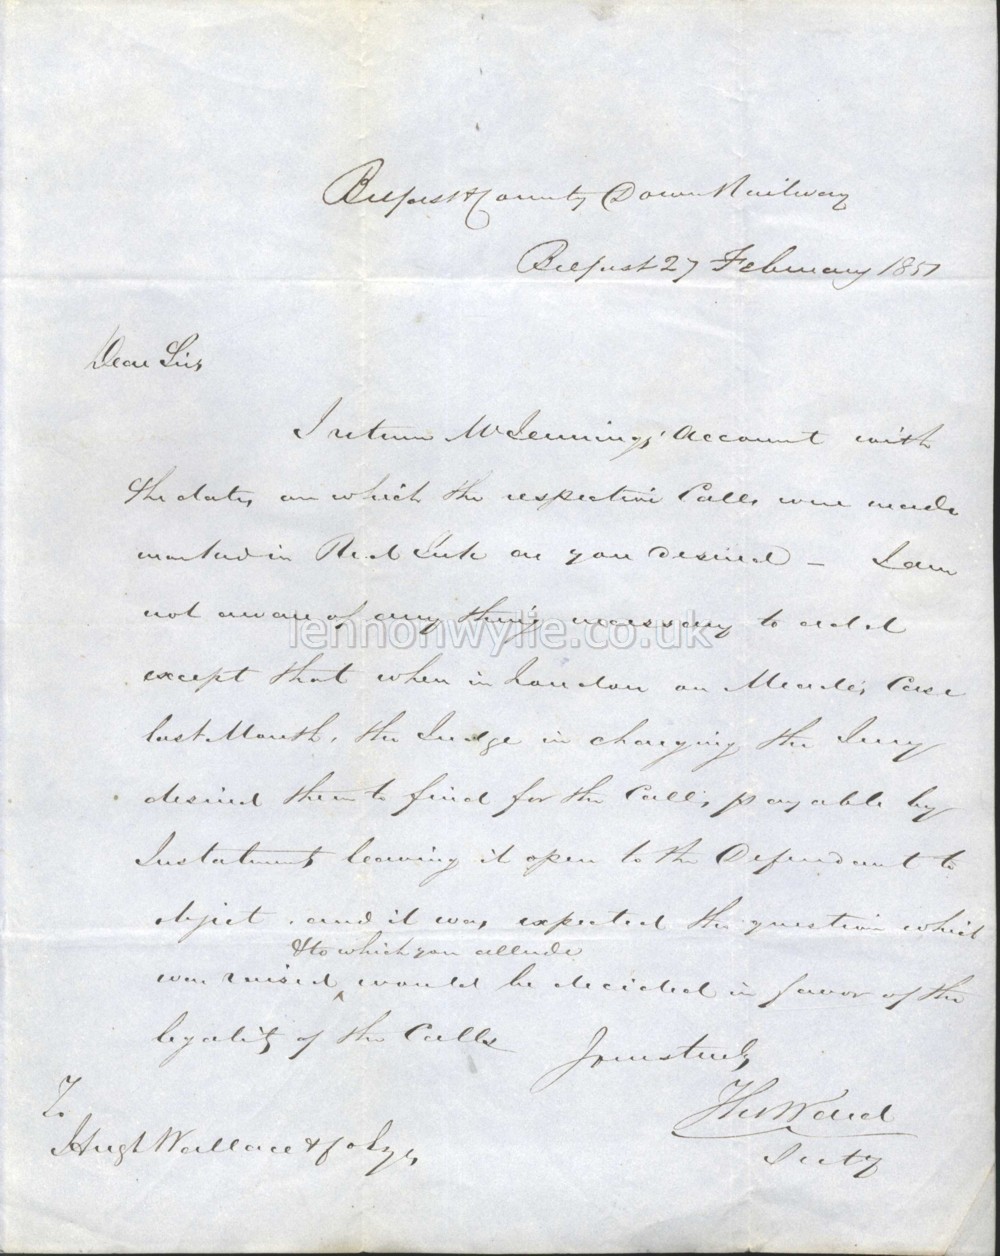 Belfast & County Down Railway
Belfast 27 February 1851
Dear Sir,
I return Mr Jennings' Account with
the dates on which the respective Calls were made
marked in Red Ink as you desired – I am
not aware of any thing necessary to add
lennonwylie.co.uk
except that when in London on Meade's Case
last Month, the Judge in charging the Jury
desired them to find for the Calls payable by
Instalments leaving it open to the Defendant to
object, and it was expected the question which
& to which you allude
was raised ^ would be decided in favor of the
legality of the Calls
Yours truly
Thos Ward
Secty
To
Hugh Wallace & Co Esqrs